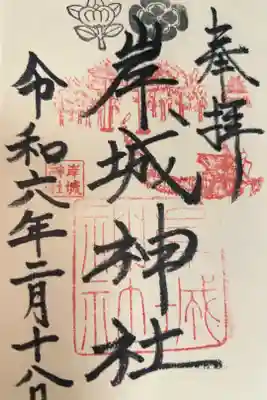 奉拝
岸城神社
岸城
神社
令和六年二月十八日